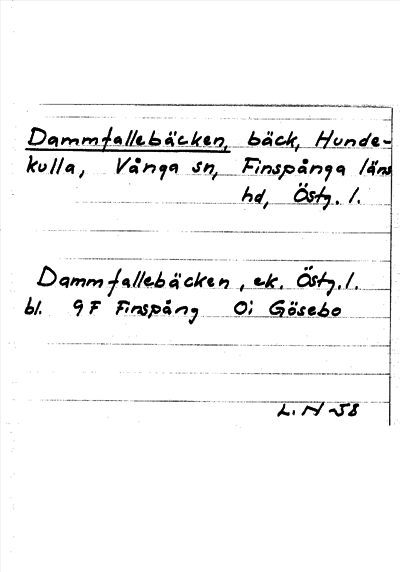 Dammfallebäcken, bäck, Hunde-
kulla, Vånga sn, Finspånga läns
hd, Östg. l.
Dammfallebäcken, ek. Östg. l.
bl. 9 F Finspång 0i Gösebo
L. N -58